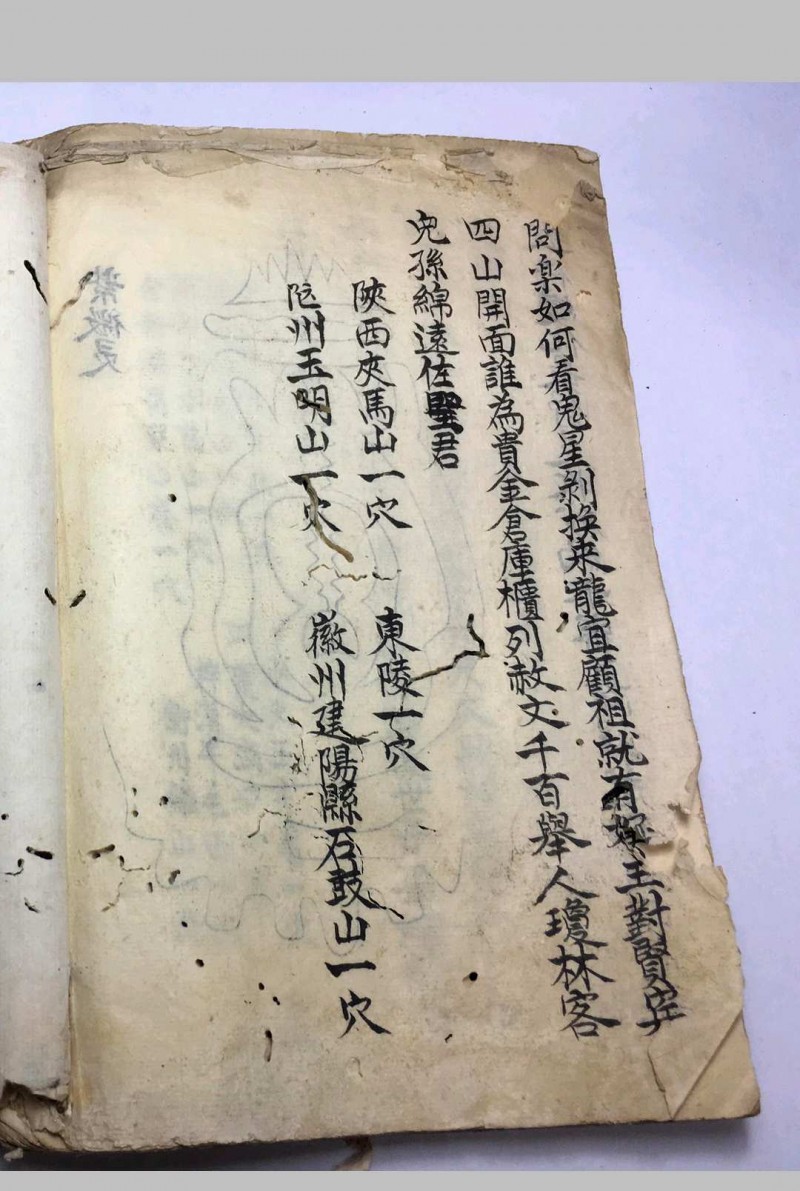 問楽如何看鬼星剥換来龍宜顧祖就有好主對賢宰
四山開面誰為貴金倉庫櫃列赦文千百舉人瓊林客
兒孫綿遠佐聖君
陝西夾馬山一穴 東陵一穴
州玉明山一穴 徽州建陽縣石鼓山一穴
紫微